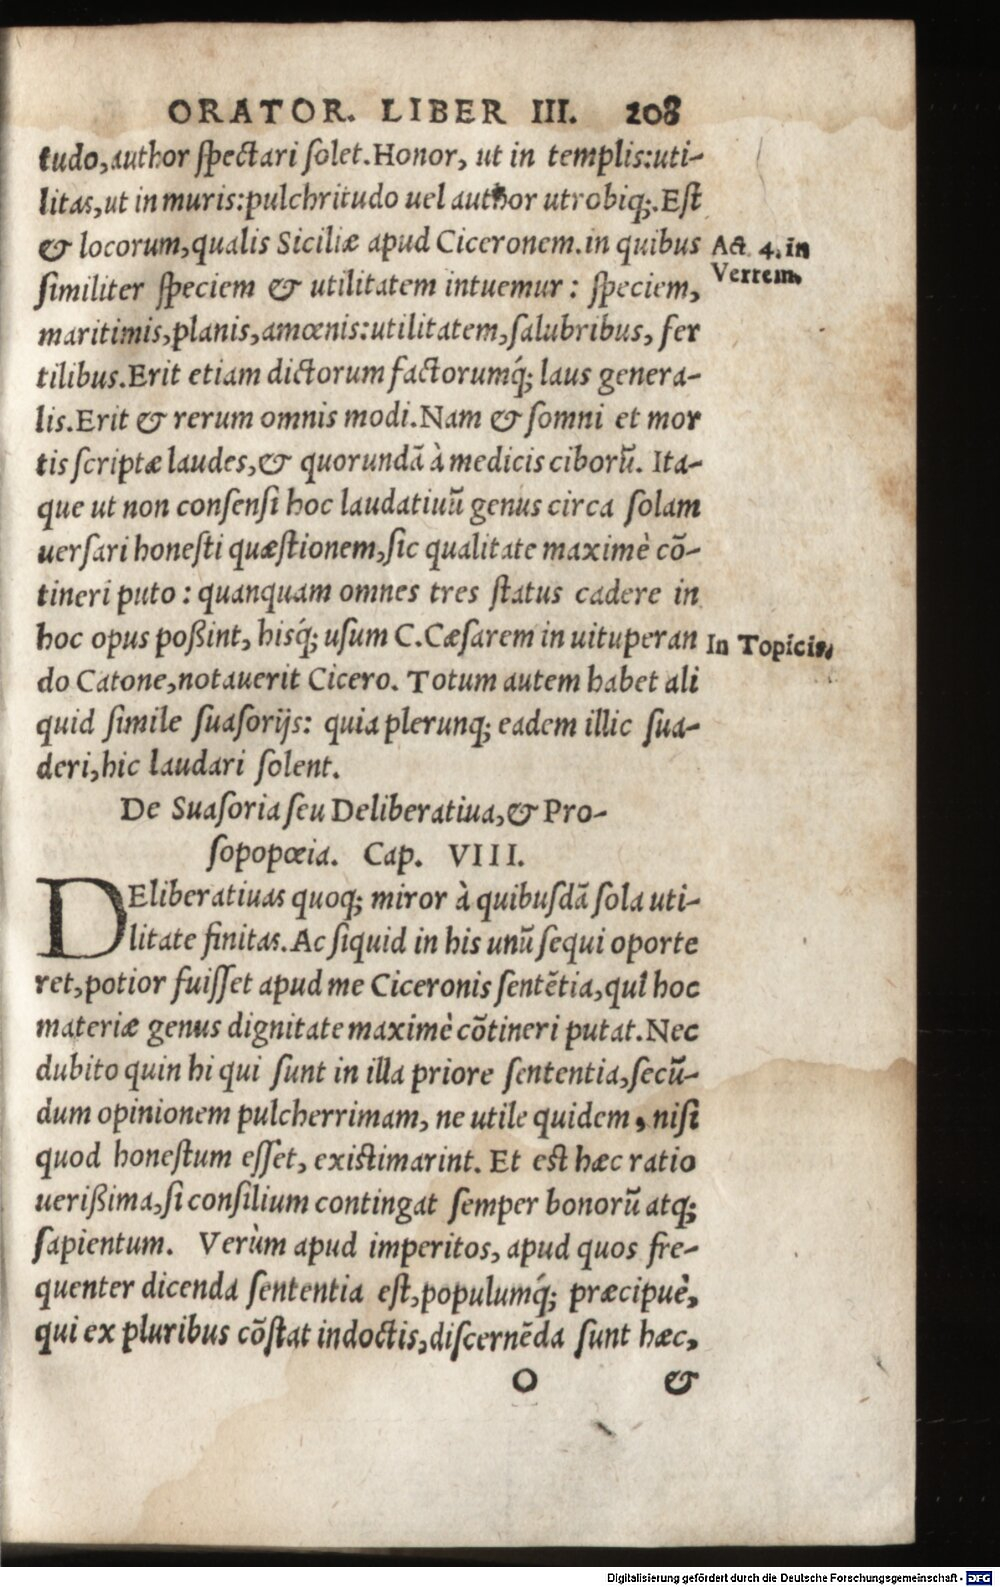 ORATOR. LIBER III. 208
tudo,author ſpectari ſolet.Honor, ut in templis:uti-
litas,ut in muris:pulchritudo uel author utrobiq;.Eſt
& locorum,qualis Siciliæ apud Ciceronem.in quibus
Act. 4. in
Verrem.
ſimiliter ſpeciem & utilitatem intuemur : ſpeciem,
maritimis,planis,amœnis:utilitatem,ſalubribus, fer
tilibus.Erit etiam dictorum factorumq́; laus genera-
lis.Erit & rerum omnis modi.Nam & ſomni et mor
tis ſcriptæ laudes,& quorundā à medicis ciborū. Ita-
que ut non conſenſi hoc laudatiuū genus circa ſolam
uerſari honeſti quæſtionem,ſic qualitate maximè cō-
tineri puto : quanquam omnes tres ſtatus cadere in
hoc opus poßint, hisq́; uſum C.Cæſarem in uituperan
In Topicis.
do Catone,notauerit Cicero. Totum autem habet ali
quid ſimile ſuaſorijs: quia plerunq; eadem illic ſua-
deri,hic laudari ſolent.
De Suaſoria ſeu Deliberatiua,& Pro-
ſopopœia. Cap. VIII.
DEliberatiuas quoq; miror à quibuſdā ſola uti-
litate finitas.Ac ſiquid in his unū ſequi oporte
ret,potior fuiſſet apud me Ciceronis ſentētia,qui hoc
materiæ genus dignitate maximè cōtineri putat.Nec
dubito quin hi qui ſunt in illa priore ſententia,ſecū-
dum opinionem pulcherrimam, ne utile quidem , niſi
quod honeſtum eſſet, exiſtimarint. Et eſt hæc ratio
uerißima,ſi conſilium contingat ſemper bonorū atq;
ſapientum. Verùm apud imperitos, apud quos fre-
quenter dicenda ſententia eſt,populumq́; præcipuè,
qui ex pluribus cōſtat indoctis,diſcernēda ſunt hæc,
O &
Digitalisierung gefördert durch die Deutsche Forschungsgemeinschaft - DFG